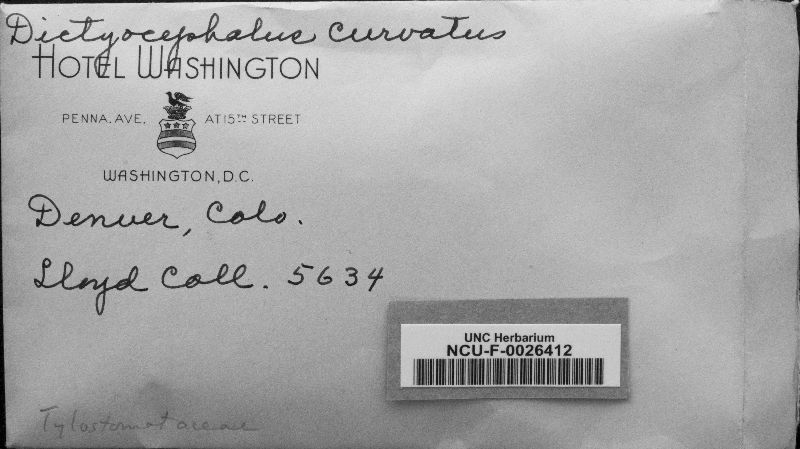 Dictyocephalus curvatus
HOTEL WASHINGTON
PENNA. AVE. AT 15TH STREET
WASHINGTON, D.C.
Denver, Colo.
Lloyd Coll. 5634
UNC Herbarium
NCU-F-0026412
Tylostomataceae